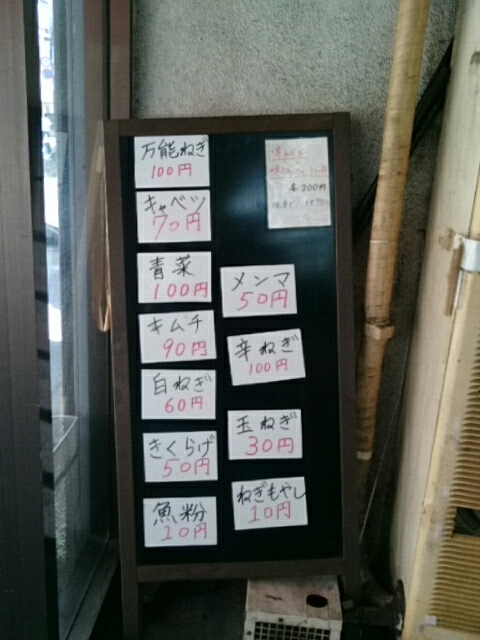 万能ねぎ
100円
キャベツ
70円
青菜
100円
キムチ
90円
白ねぎ
60円
きくらげ
50円
魚粉
10円
200円
メンマ
50円
辛ねぎ
100円
玉ねぎ
30円
ねぎもやし
10円